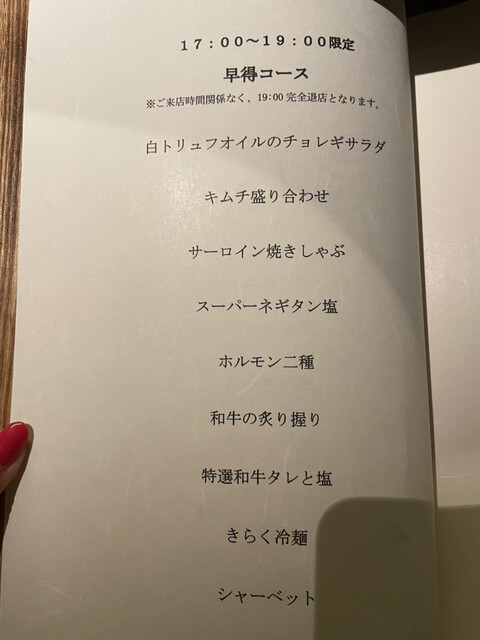 17:00～19:00限定
早得コース
※ご来店時間関係なく、19:00完全退店となります。
白トリュフオイルのチョレギサラダ
キムチ盛り合わせ
サーロイン焼きしゃぶ
スーパーネギタン塩
ホルモン二種
和牛の炙り握り
特選和牛タレと塩
きらく冷麺
シャーベット